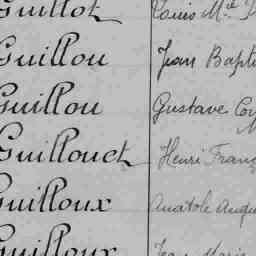 Guillot Louis M.el
Guillou Jean Bapti
Guillou Gustave Co
Guillouet Henri Franç
Guilloux Anatole Augu
Guilloux Jean Marie